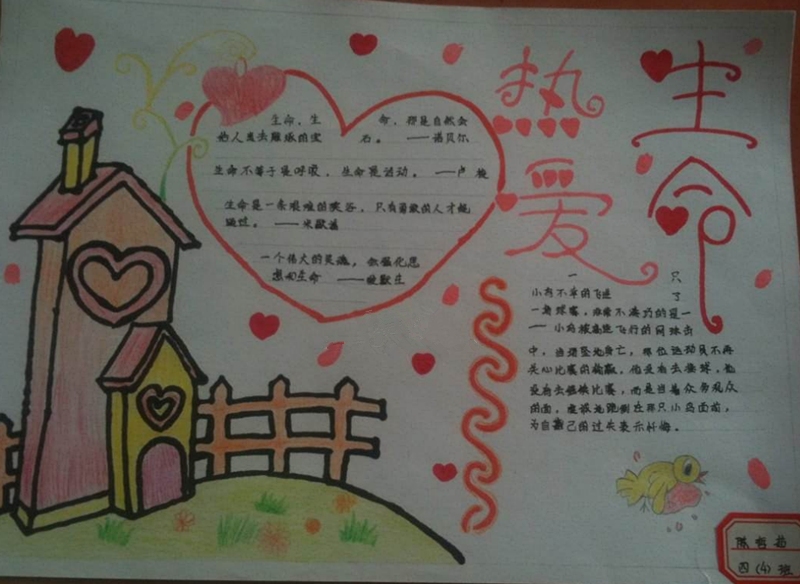 热爱
生命
生命、生 命、那是自然会
给人类去雕琢的宝 石。——诺贝尔
生命不等于是呼吸，生命是活动。——卢梭
生命是一条艰难的峡谷，只有勇敢的人才能
通过。——米歇潘
一个伟大的灵魂，会强化思
想和生命 ——爱默生
一 只
小鸟不幸的飞进 了
一场球赛，非常不凑巧的是一
——小鸟被高速飞行的网球击
中，当场坠地身亡，那位运动员不再
关心比赛的输赢，他没有去接球，也
没有去继续比赛，而是当着众多观众
的面，虔诚地跪倒在那只小鸟面前，
为自己的过失表示忏悔。
陈
四(4)班